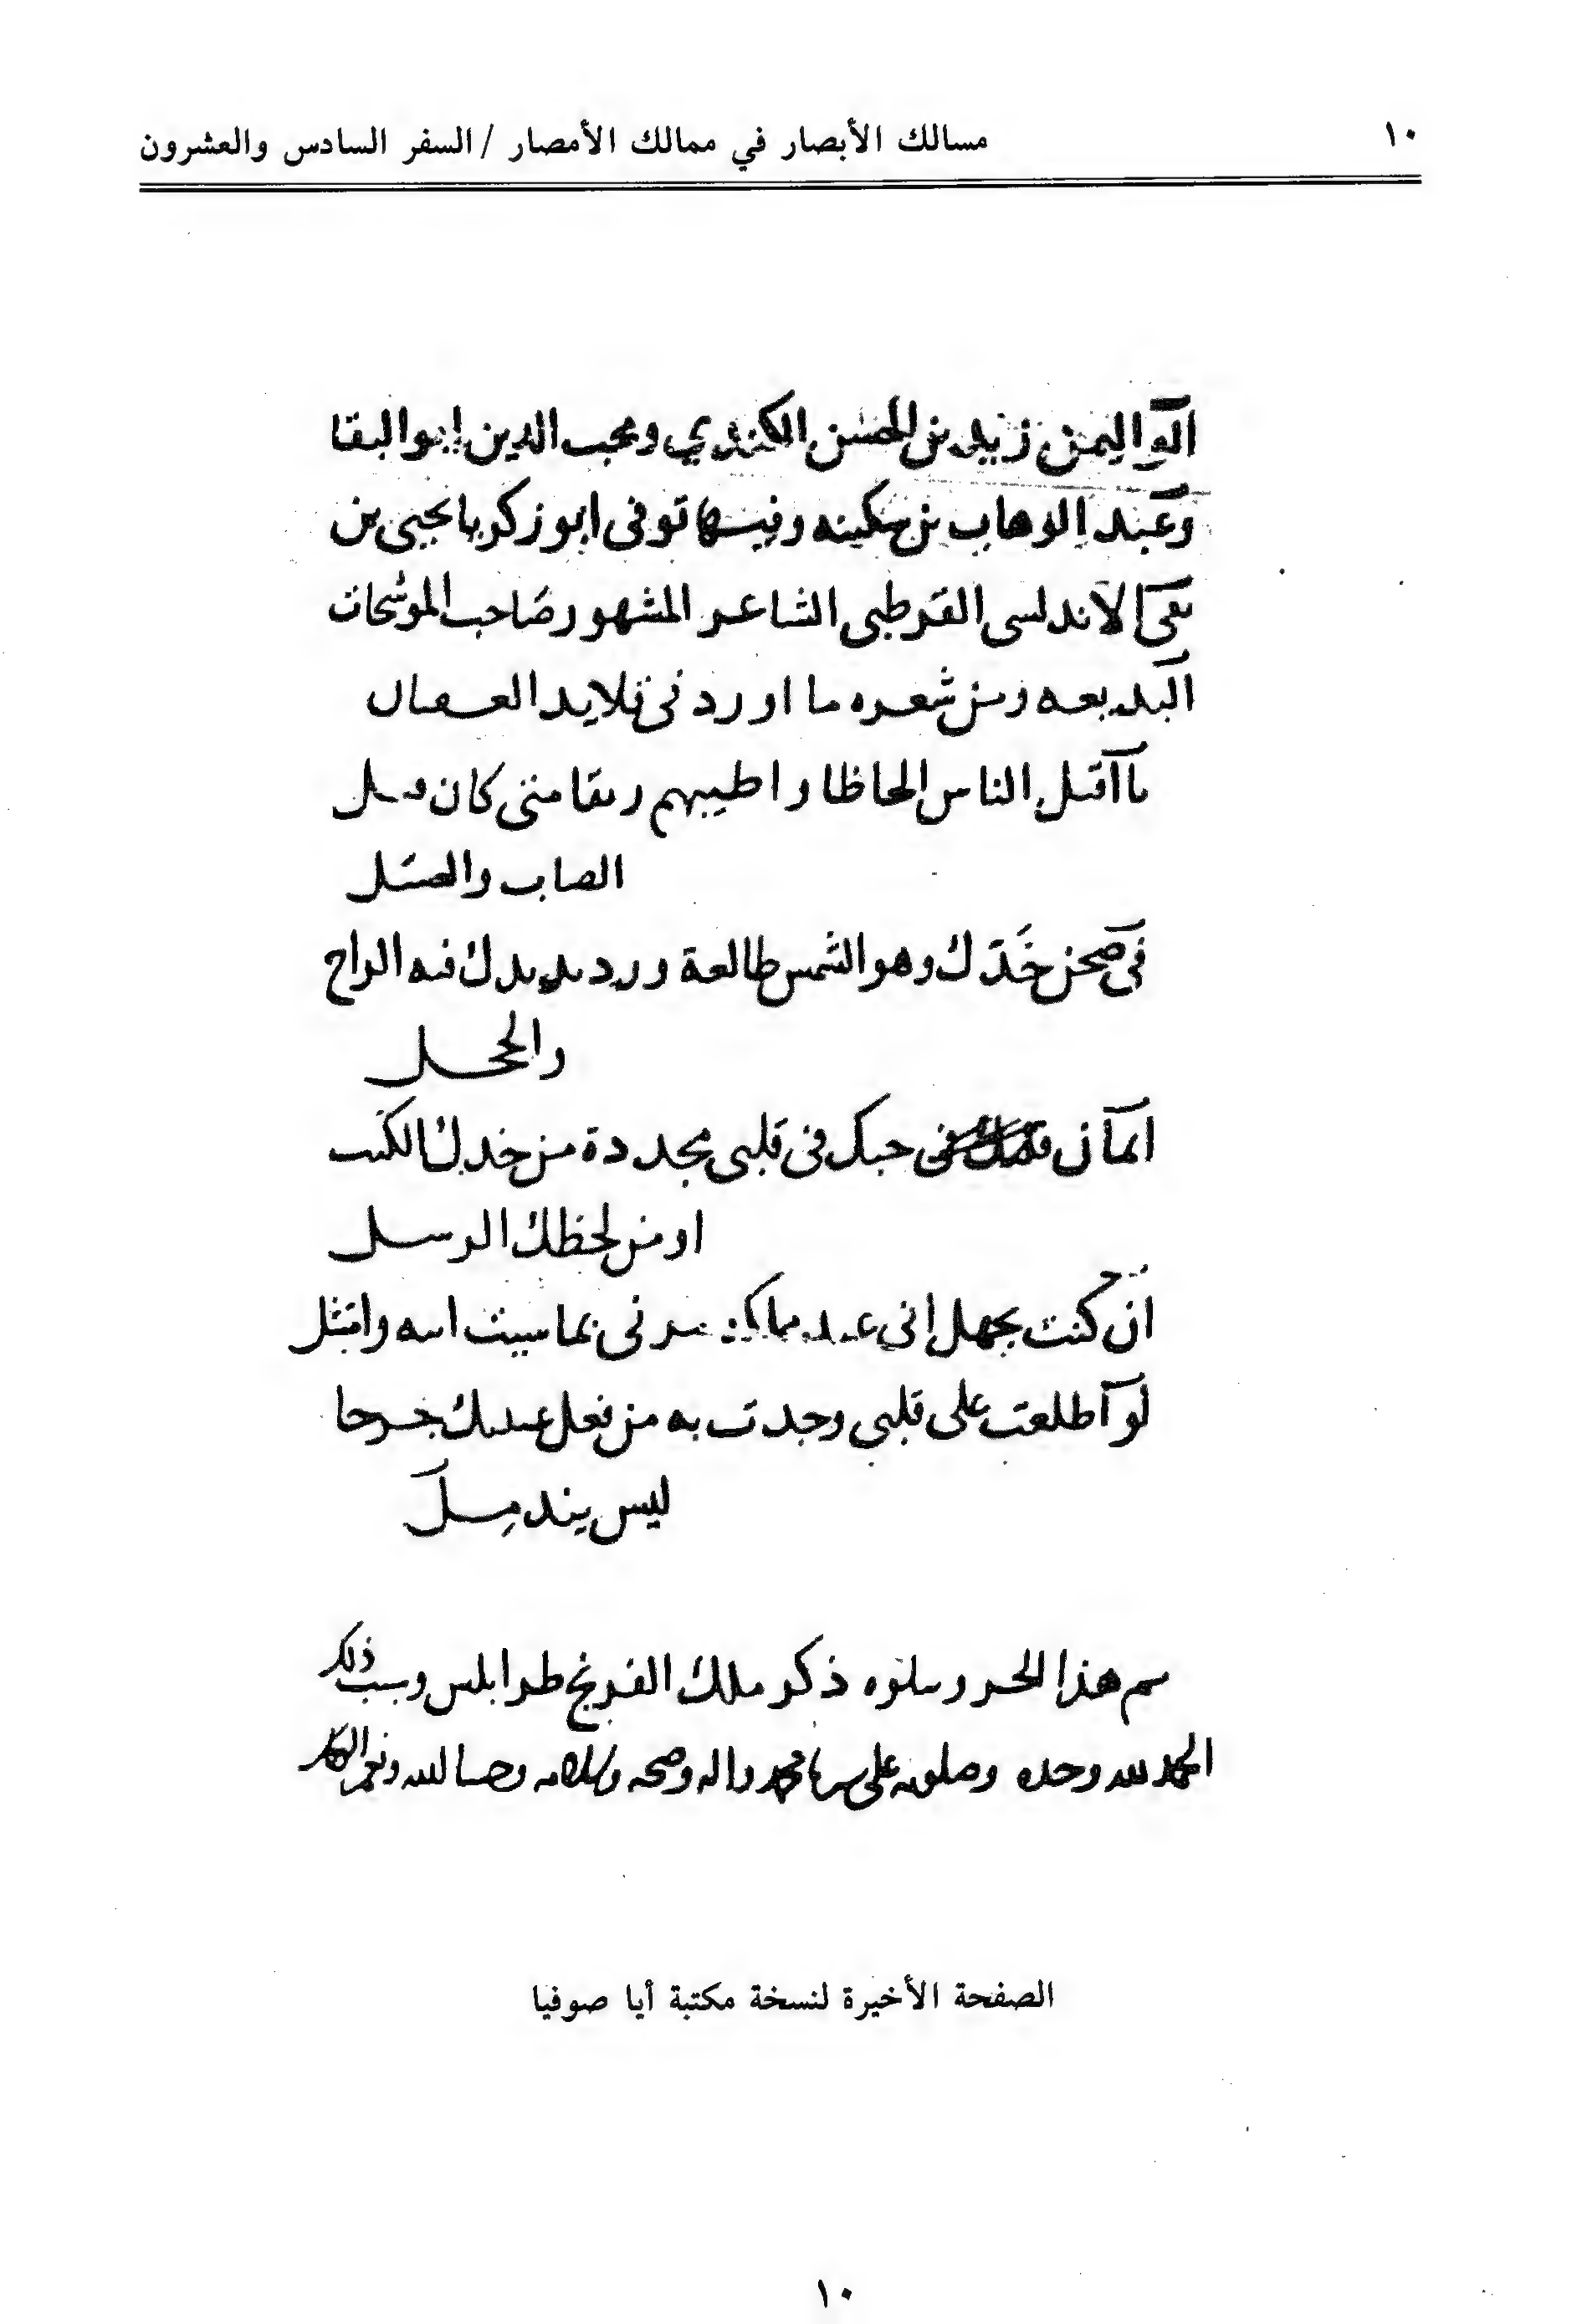 ١٠
مسالك الأبصار في ممالك الأمصار / السفر السادس والعشرون
ابو اليمن زيد بن الحسن الكندي ومحب الدين ابو البقا
وعبد الوهاب بن سكينه وفيها توفى ابو زكريا يحيى بن
بقى الاندلسى القرطبى الشاعر المشهور صاحب الموشحات
البديعه ومن شعره ما اورد فى قلايد العقيان
يا اقتل الناس الحاظا واطيبهم ريقا متى كان فيك
الصاب والعسل
فى صحن خدك وهو الشمس طالعة ورد يزيدك فيه الراح
والخجل
ايمان حبك فى قلبى مجددة من خدك الكتب
او من لحظك الرسل
ان كنت تجهل انى عبد مملكة مرنى بما شيت اته وامتثل
لو اطلعت على قلبى وجدت به من فعل عينيك جرحا
ليس يندمل
هذا الجزو يتلوه ذكر ملك الفرنج طرابلس وسبب ذلك
الحمد لله وحده وصلوته على سيدنا محمد واله وصحبه وسلامه وحسبنا الله ونعم الوكيل
الصفحة الأخيرة لنسخة مكتبة أيا صوفيا
١٠